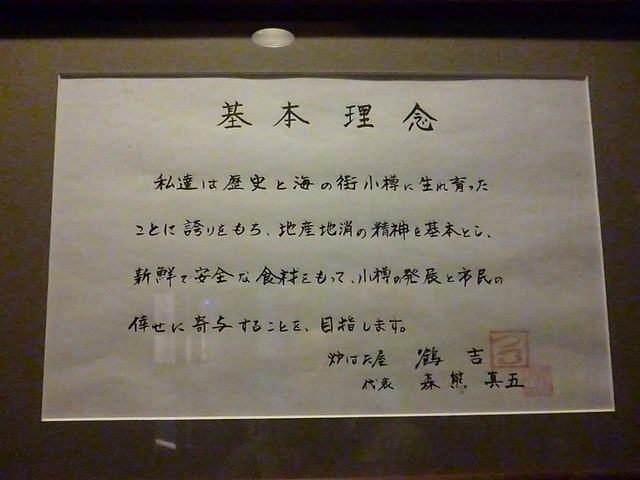 基本理念
私達は歴史と海の街小樽に生れ育った
ことに誇りをもち、地産地消の精神を基本とし、
新鮮で安全な食材をもって、小樽の発展と市民の
倖せに寄与することを、目指します。
炉ばた屋 鶴吉
代表 森熊 真五